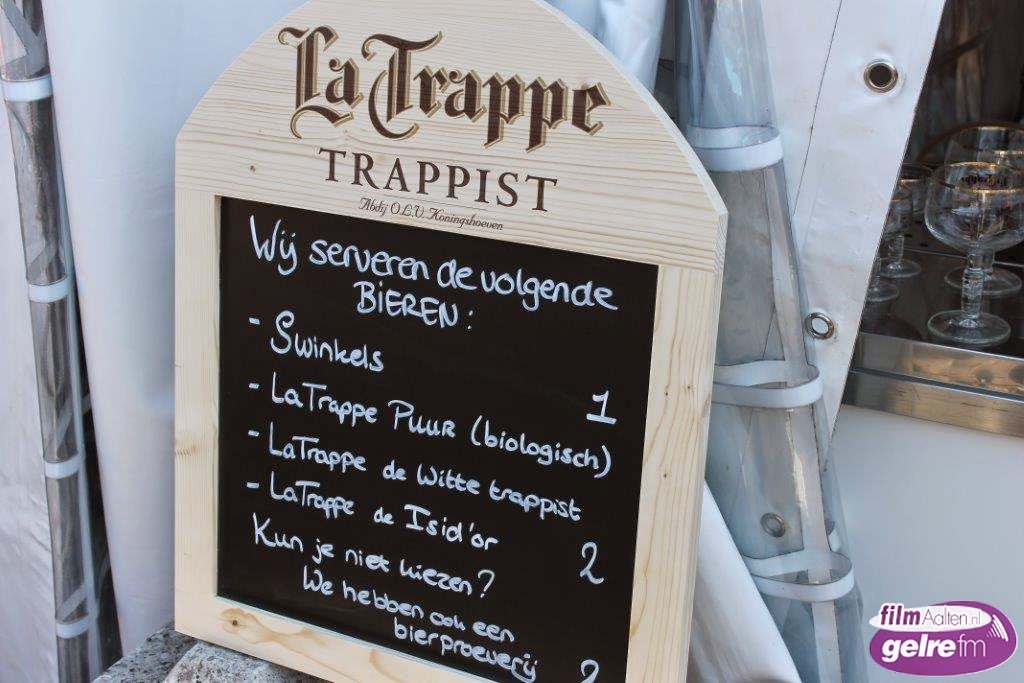 La Trappe
TRAPPIST
Abdij O.L.V. Koningshoeven
Wij serveren de volgende
BIEREN:
- Swinkels 1
- LaTrappe PUUR (biologisch)
- LaTrappe de Witte trappist
- LaTrappe de Isid'or 2
Kun je niet kiezen?
We hebben ook een
bierproeverij
filmAalten.nl
gelre fm